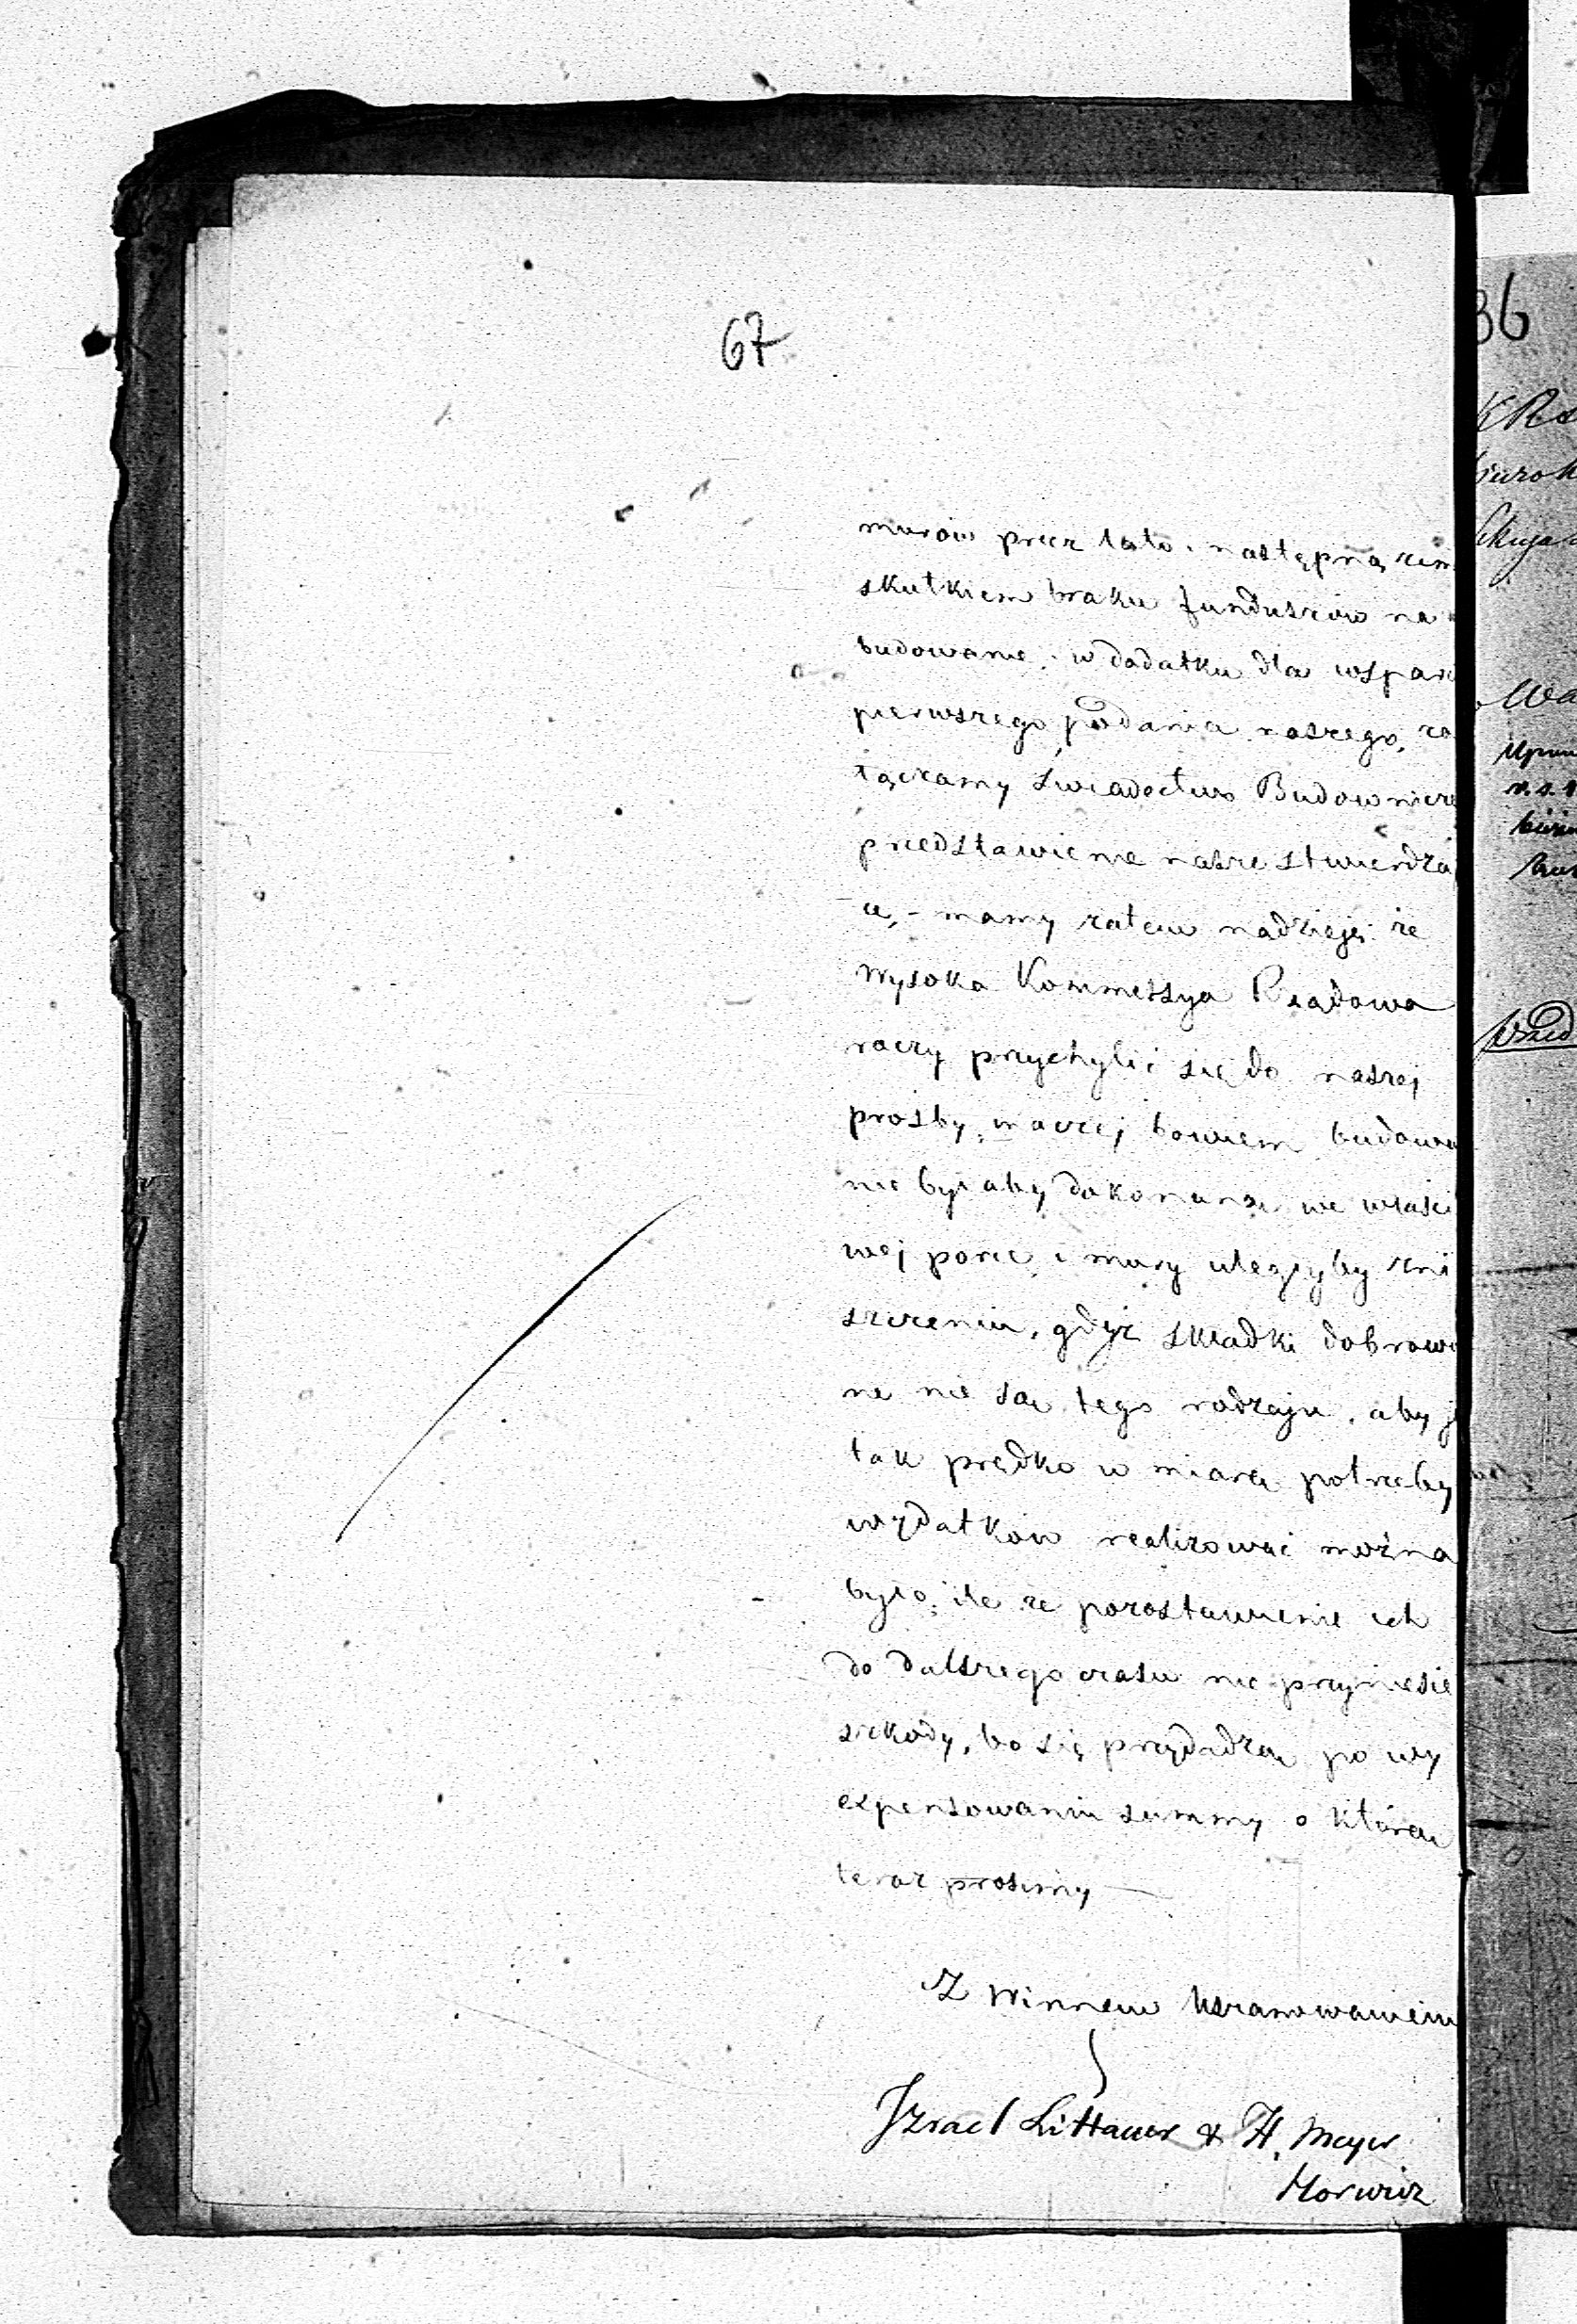 67
murów przez lato i następną zim
skutkiem braku funduszów na
budowanie, w dodatku dla wspar
pierwszego podania naszego, za
łączamy Świadectwo Budownicze
przedstawienie nasze stwierdza
ce, - mamy zatem nadzieję że
Wysoka Kommissya Rządowa
raczy przychylić się do naszej
prośby, inaczej bowiem budowa
nie byłaby dokonaną we właści
wej porze i mury uległyby zni
szczeniu, gdyż składki dobrowo
ne nie są tego rodzaju, aby j
tak prędko w miarę potrzeby
wydatków realizować można
było, ile że pozostawienie ich
do dalszego czasu nie przyniesie
szkody, bo się przydadzą po wy
expensowaniu summy o którą
teraz prosimy
Z Winnem Uszanowaniem
Izrael Littauer & H. Meyer
Horwiz
36